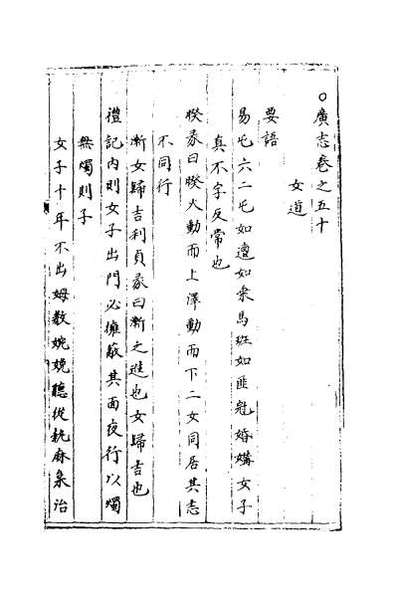 ○廣志卷之五十
女道
要語
易屯六二屯如邅如乘馬班如匪冦婚媾女子
真不字反常也
睽彖曰睽火動而上澤動而下二女同居其志
不同行
漸女歸吉利貞彖曰漸之進也女歸吉也
禮記內則女子出門必擁蔽其面夜行以燭
無燭則子
女子十年不出姆敎婉娩聽從執麻枲治